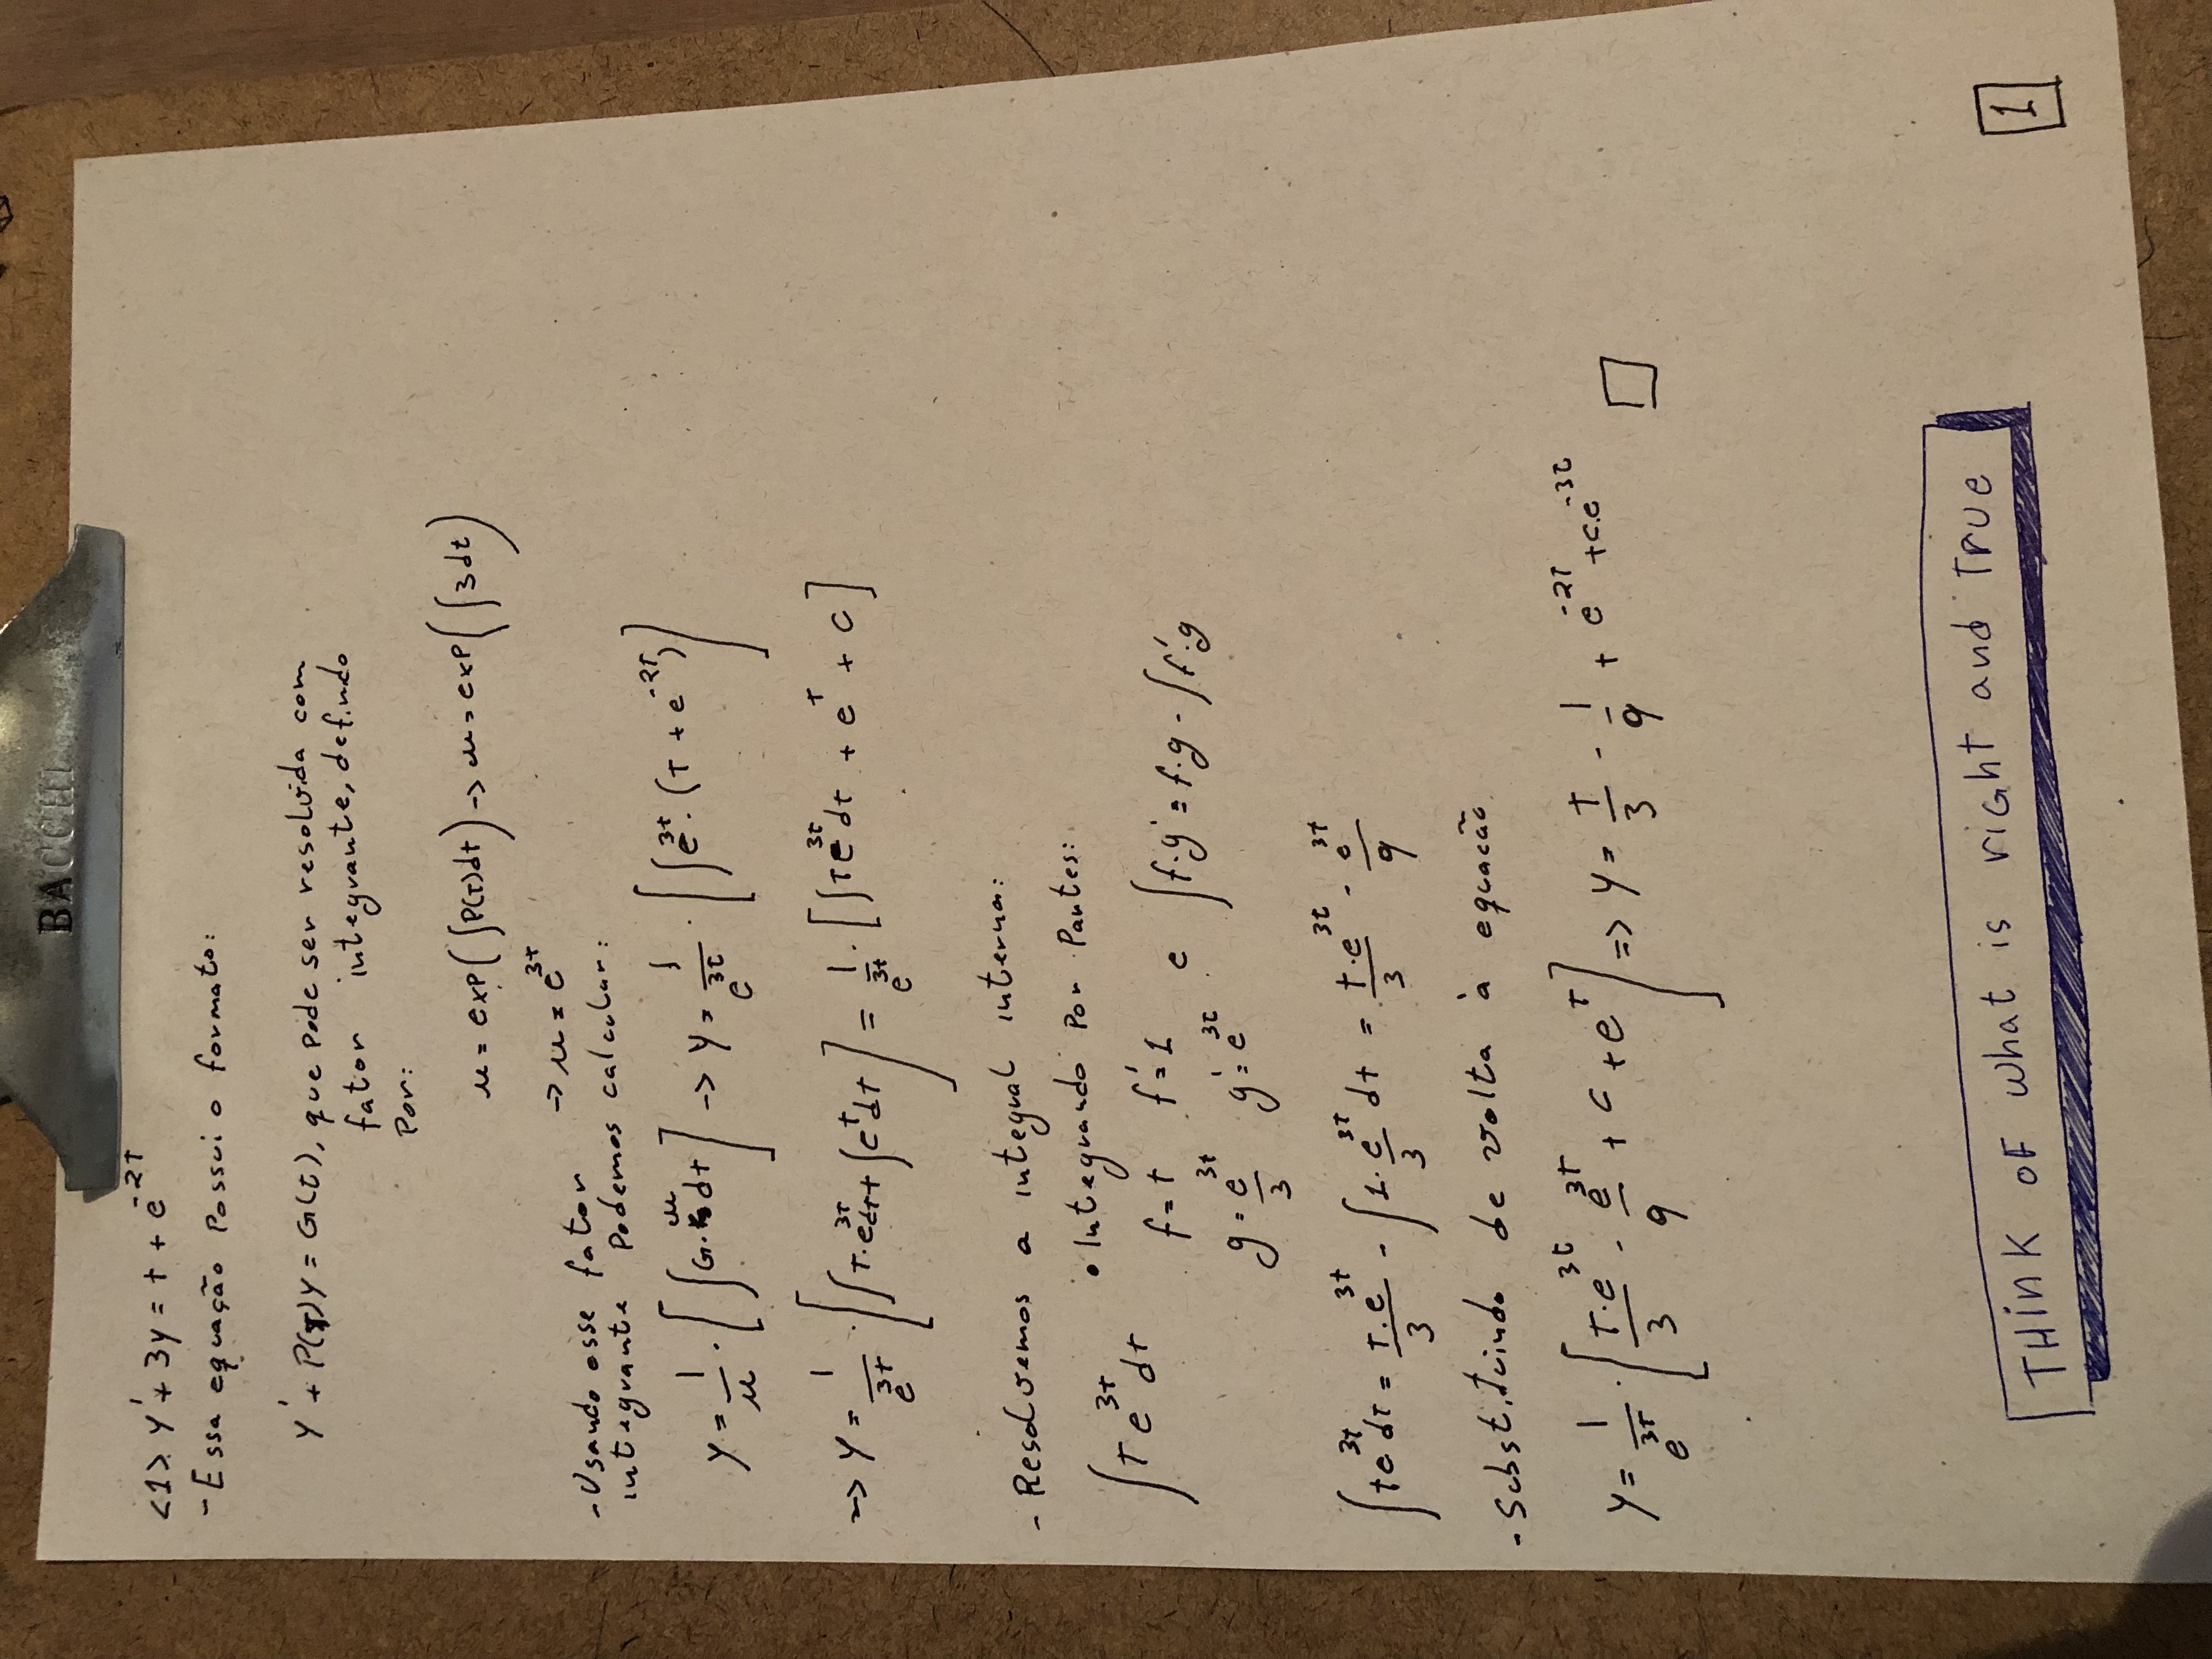 BACCHI
<1> y' + 3y = t + e^{-2t}
- Essa equação possui o formato:
y' + P(t)y = G(t), que pode ser resolvida com
fator integrante, definido
por:
μ = exp(∫P(t)dt) -> μ = exp(∫3dt)
-> μ = e^{3t}
- Usando esse fator
integrante podemos calcular:
y = 1/μ · [∫G·μdt] -> y = 1/e^{3t} · [∫e^{3t}·(t + e^{-2t})]
=> y = 1/e^{3t} · [∫t·e^{3t}dt + ∫e^t dt] = 1/e^{3t} · [∫te^{3t}dt + e^t + c]
- Resolvemos a integral interna:
• Integrando por partes:
∫te^{3t}dt
f = t f' = 1 e ∫f·g' = f·g - ∫f'·g
g = e^{3t}/3 g' = e^{3t}
∫te^{3t}dt = t·e^{3t}/3 - ∫1·e^{3t}/3 dt = t·e^{3t}/3 - e^{3t}/9
- Substituindo de volta à equacão
y = 1/e^{3t} · [t·e^{3t}/3 - e^{3t}/9 + c + e^t] => y = t/3 - 1/9 + e^{-2t} + c·e^{-3t} □
THiNK OF what is riGht and True
1